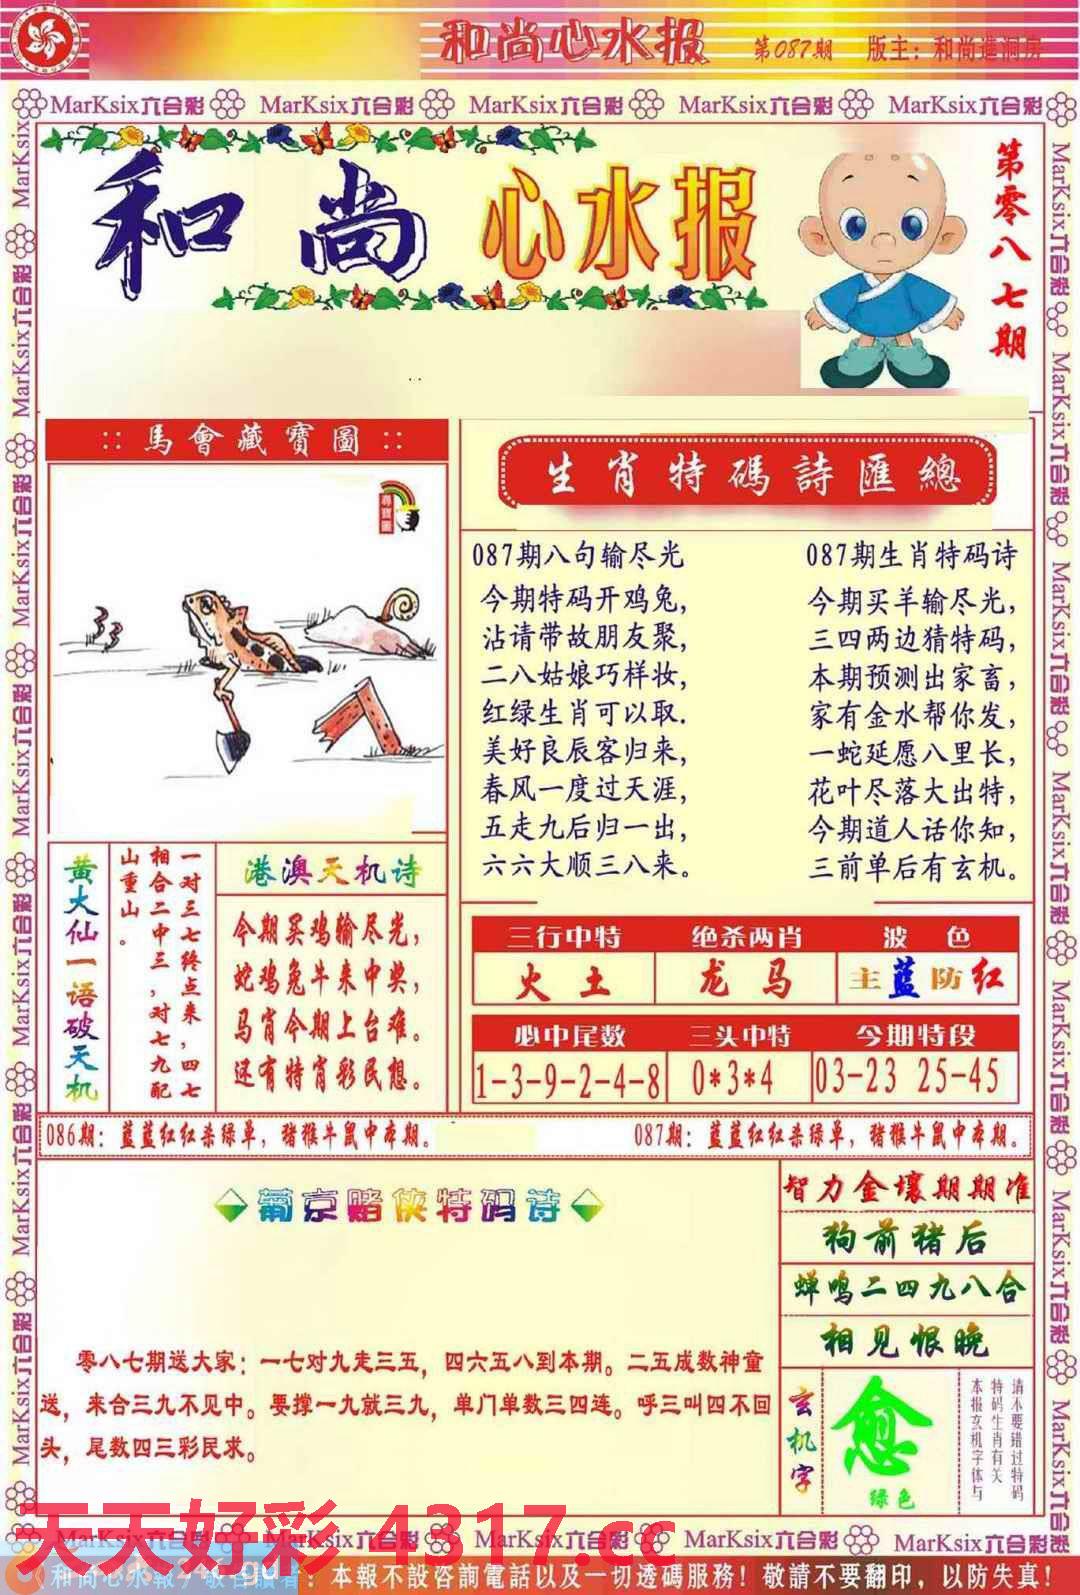 和尚心水报 第087期 版主：和尚進洞房
MarKsix六合彩 MarKsix六合彩 MarKsix六合彩 MarKsix六合彩 MarKsix六合彩
和尚 心水报
第零八七期
:: 馬會藏寶圖 ::
尋寶圖
生肖特碼詩匯總
087期八句输尽光
今期特码开鸡兔，
沾请带故朋友聚，
二八姑娘巧样妆，
红绿生肖可以取.
美好良辰客归来，
春风一度过天涯，
五走九后归一出，
六六大顺三八来。
087期生肖特码诗
今期买羊输尽光，
三四两边猜特码，
本期预测出家畜，
家有金水帮你发，
一蛇延愿八里长，
花叶尽落大出特，
今期道人话你知，
三前单后有玄机。
黄大仙一语破天机
一对三七终点来，四七
相合二中三，对七九配
山重山。
港澳天机诗
今期买鸡输尽光，
蛇鸡兔牛来中奖，
马肖今期上台难。
还有特肖彩民想。
三行中特 绝杀两肖 波色
火土 龙马 主蓝防红
必中尾数 三头中特 今期特段
1-3-9-2-4-8 0*3*4 03-23 25-45
086期：蓝蓝红红杀绿单，猪猴牛鼠中本期。
087期：蓝蓝红红杀绿单，猪猴牛鼠中本期。
葡京赌侠特码诗
零八七期送大家：一七对九走三五，四六五八到本期。二五成数神童
送，来合三九不见中。要撑一九就三九，单门单数三四连。呼三叫四不回
头，尾数四三彩民求。
智力金壤期期准
狗前猪后
蝉鸣二四九八合
相见恨晚
玄机字
愈
绿色
请不要错过特码
特码生肖有关
本报玄机字体与
天天好彩 4317.cc
MarKsix六合彩 MarKsix六合彩 MarKsix六合彩 MarKsix六合彩 MarKsix六合彩
和尚心水報 敬告讀者：本報不設咨詢電話以及一切透碼服務！敬請不要翻印，以防失真！